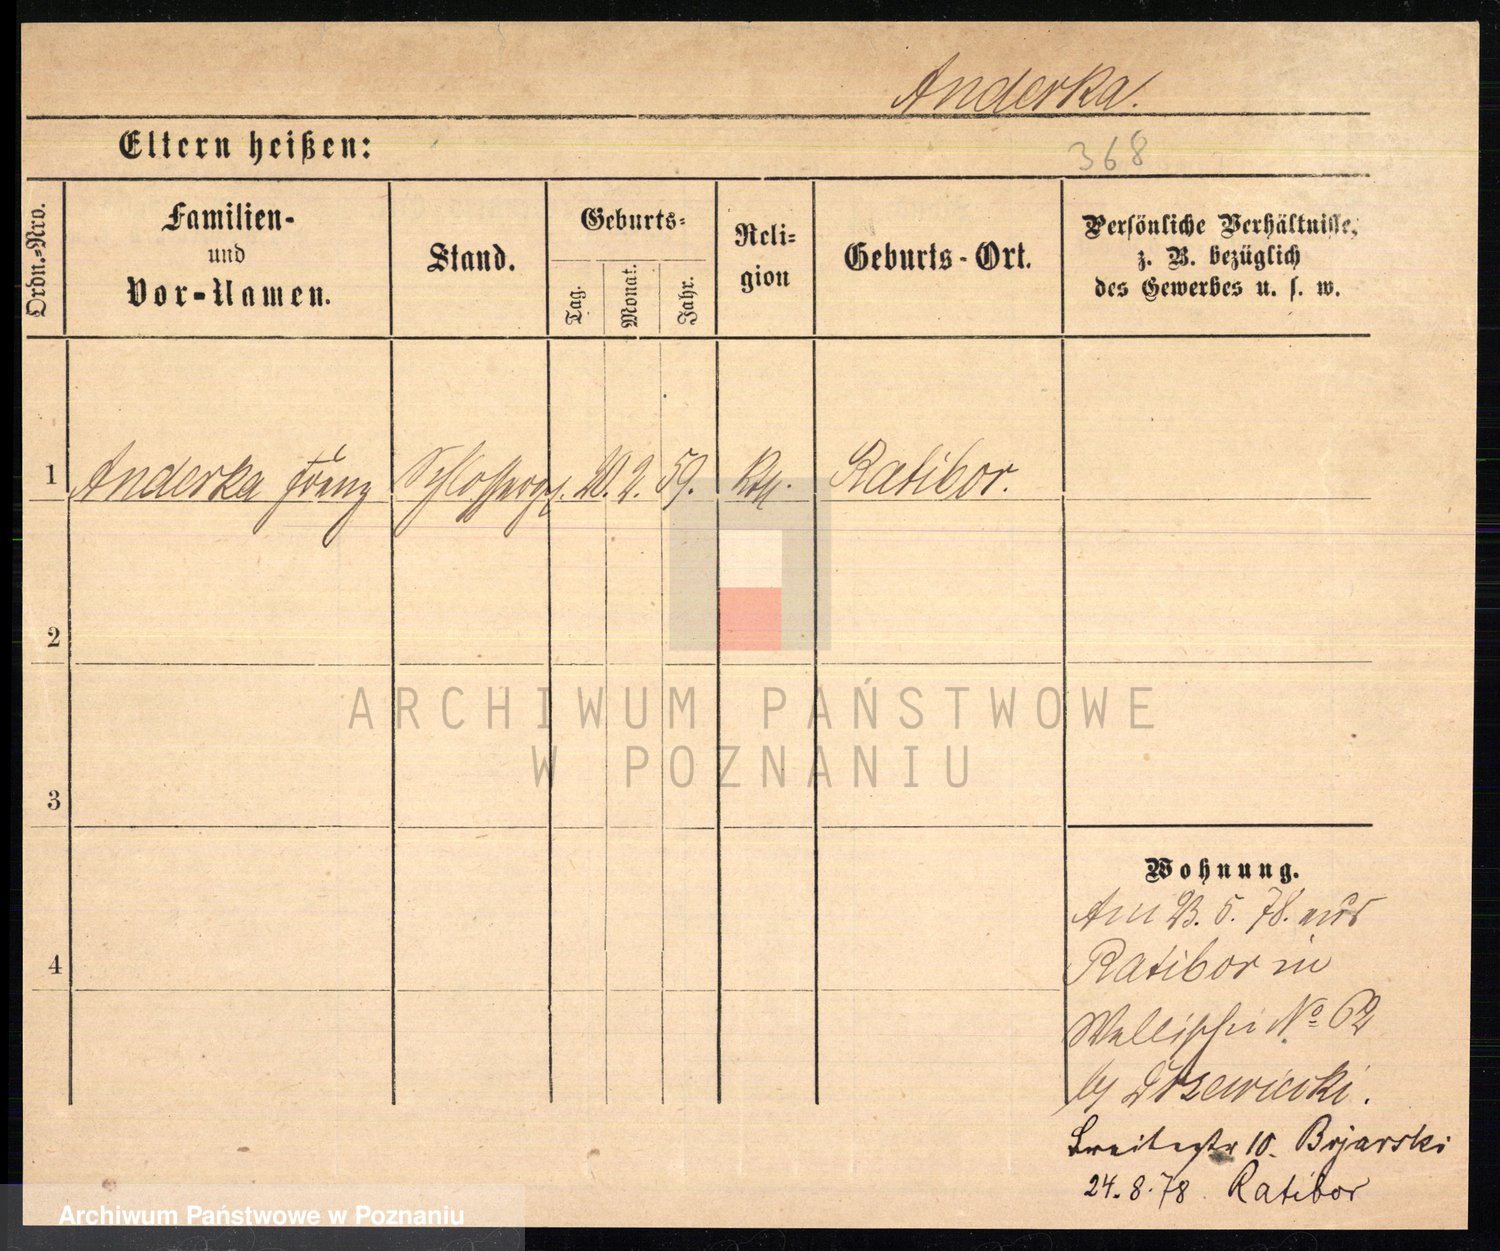 Anderka.
Eltern heißen:
368
Ordn.-Nro.
Familien-
und
Vor-Namen.
Stand.
Geburts-
Tag.
Monat.
Jahr.
Reli-
gion
Geburts-Ort.
Persönliche Verhältnisse,
z. B. bezüglich
des Gewerbes u. s. w.
1 Anderka Franz Schlosserges. 20. 2. 59. Kath. Ratibor.
2
3
4
Wohnung.
Am 23. 5. 78. aus
Ratibor in
Wallischei No 62
by Drzewicki.
Breitestr 10. Bojarski
24. 8. 78 Ratibor
ARCHIWUM PAŃSTWOWE
W POZNANIU
Archiwum Państwowe w Poznaniu